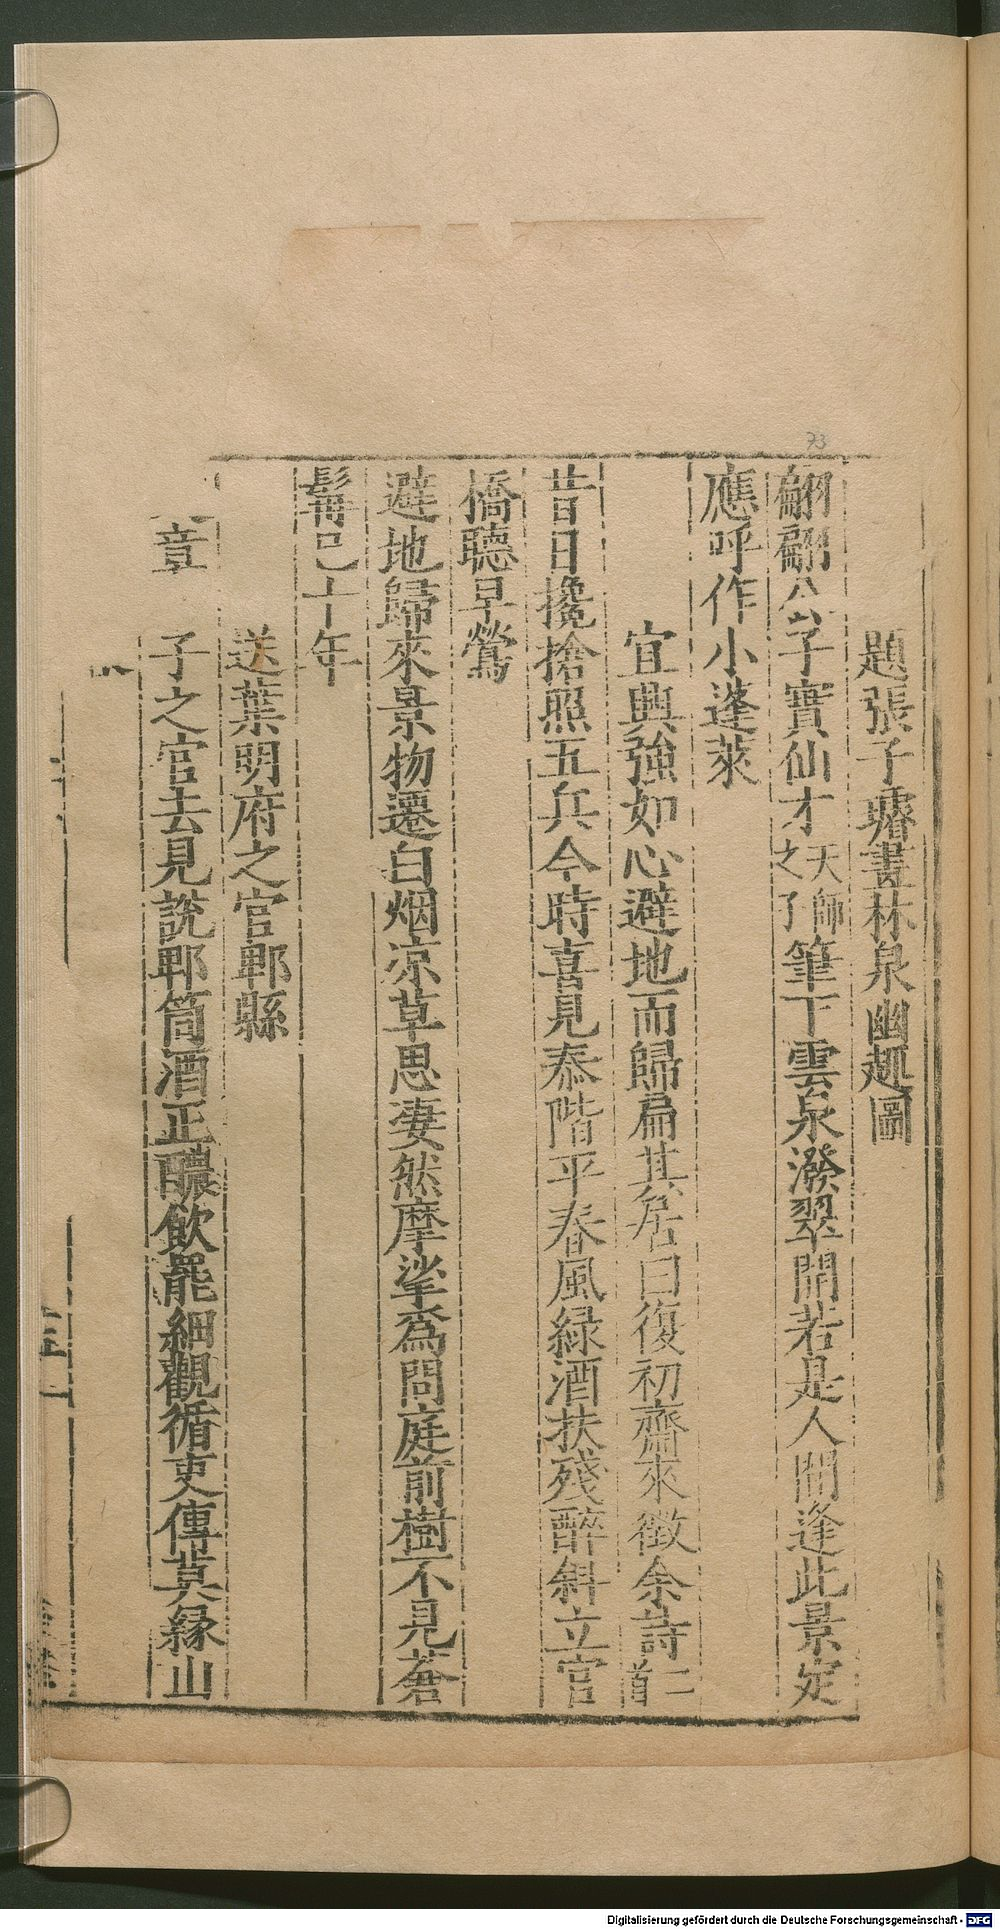 題張子璿畫林泉幽趣圖
翩翩公子實仙才天師之子筆下雲泉潑翠開若是人間逢此景定
應呼作小蓬萊
宜興強如心避地而歸扁其居曰復初齋來徵余詩二首
昔日攙搶照五兵今時喜見泰階平春風緑酒扶殘醉斜立官
橋聽早鶯
避地歸來景物遷白烟凉草思淒然摩挲爲問庭前樹不見蒼
髯已十年
送葉明府之官郫縣
章 子之官去見說郫筒酒正醲飲罷細觀循吏傳莫緣山
73
Digitalisierung gefördert durch die Deutsche Forschungsgemeinschaft - DFG